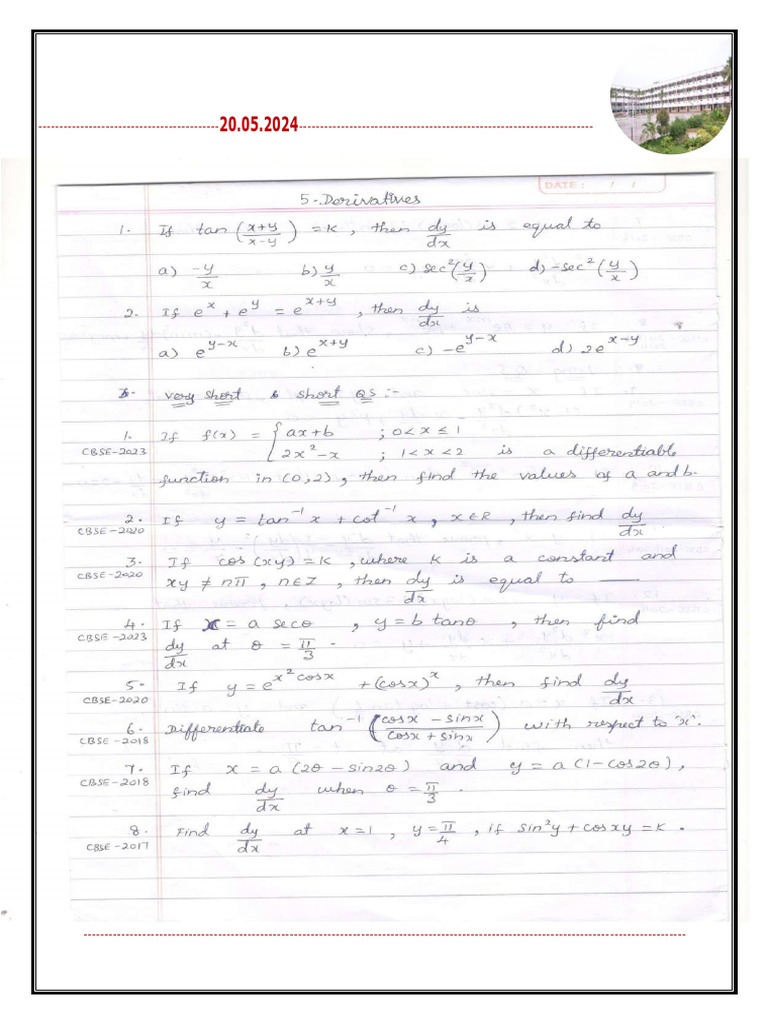 20.05.2024
DATE : / /
5-Derivatives
1. If tan (x+y/x-y) = k, then dy/dx is equal to
a) -y/x b) y/x c) sec²(y/x) d) -sec²(y/x)
2. If e^x + e^y = e^(x+y), then dy/dx is
a) e^(y-x) b) e^(x+y) c) -e^(y-x) d) 2e^(x-y)
very short & short QS :-
1. If f(x) = { ax+b ; 0<x≤1
CBSE-2023 2x²-x ; 1<x<2 is a differentiable
function in (0,2), then find the values of a and b.
2. If y = tan⁻¹x + cot⁻¹x, x∈R, then find dy/dx
CBSE-2020
3. If cos(xy) = k, where k is a constant and
CBSE-2020
xy ≠ nπ, n∈Z, then dy/dx is equal to ——
4. If x = a secθ, y = b tanθ, then find
CBSE-2023 dy/dx at θ = π/3.
5. If y = e^(x²cosx) + (cosx)^x, then find dy/dx
CBSE-2020
6. Differentiate tan⁻¹ (cosx - sinx/cosx + sinx) with respect to 'x'.
CBSE-2018
7. If x = a(2θ - sin2θ) and y = a(1-cos2θ),
CBSE-2018
find dy/dx when θ = π/3.
8. Find dy/dx at x=1, y=π/4, if sin²y + cosxy = K.
CBSE-2017